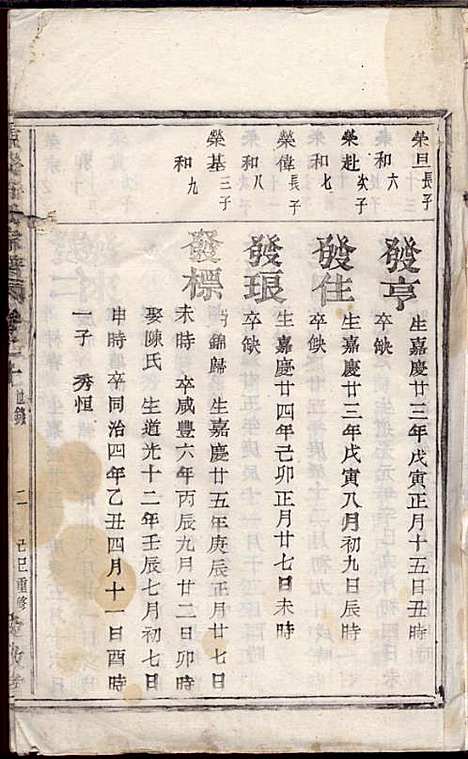 榮旦長子
和六
發亨
生嘉慶廿三年戊寅正月十五日丑時
卒缺
榮赴次子
和七
發住
生嘉慶廿三年戊寅八月初九日辰時
卒缺
榮偉長子
和八
發琅
生嘉慶廿四年己卯正月廿七日未時
卒缺
榮基三子
和九
發標
錦歸 生嘉慶廿五年庚辰正月廿七日
未時 卒咸豐六年丙辰九月廿二日卯時
娶陳氏 生道光十二年壬辰七月初七日
申時 卒同治四年乙丑四月十一日酉時
一子 秀恒
二 己巳重修